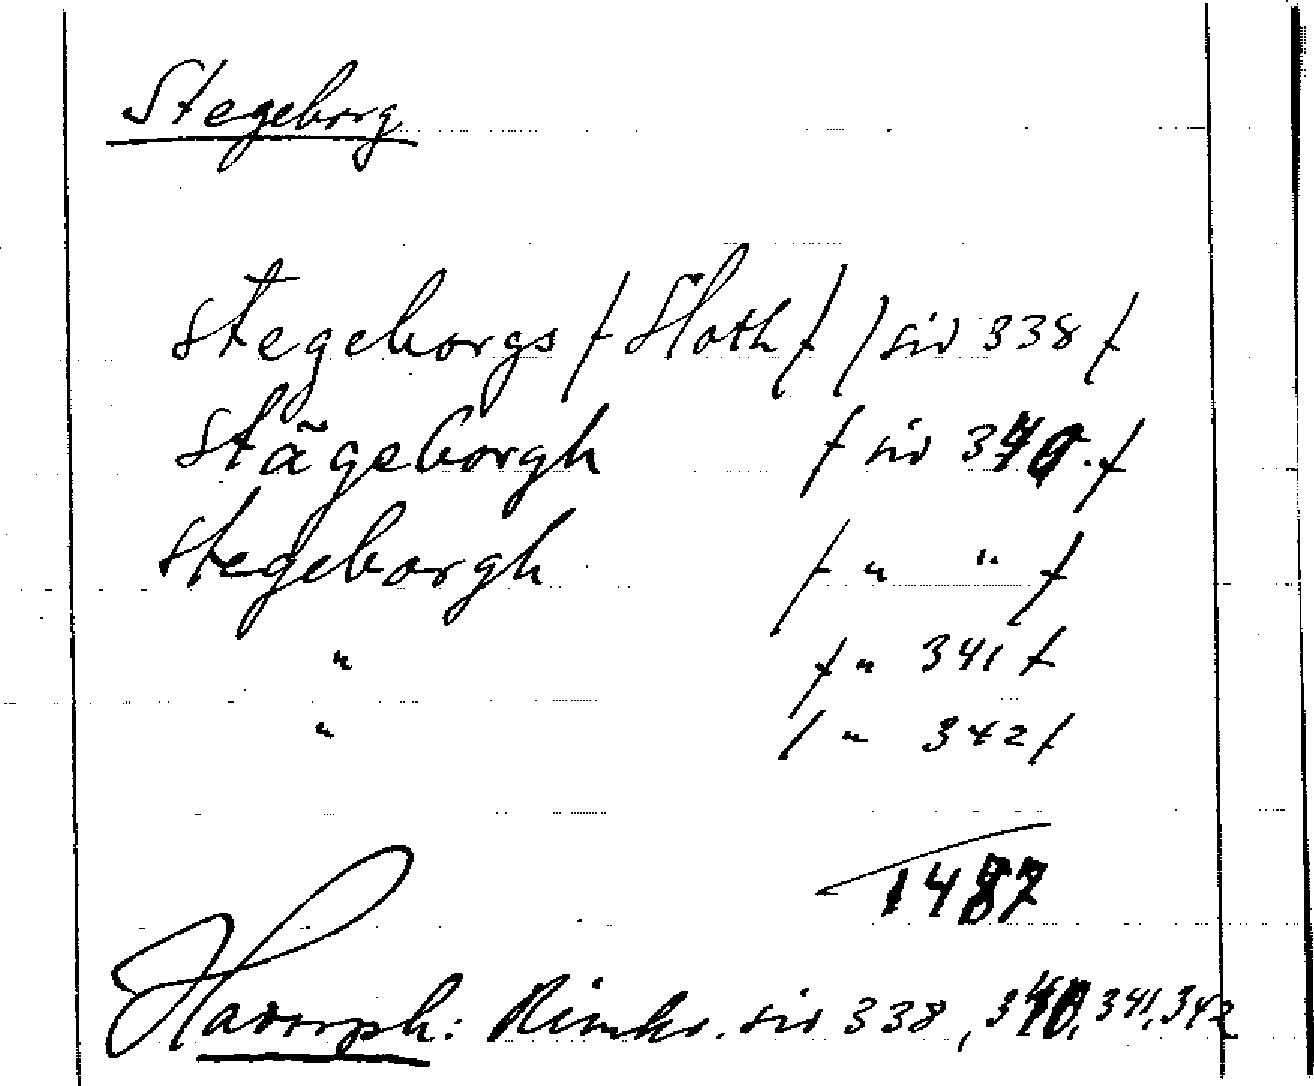 Stegeborg
Stegeborgs / Sloth / ) sid 338 /
Stägeborgh / sid 340. /
Stegeborgh / " " /
" / " 341 /
" / " 342 /
1487
Hadorph: Rimkr. sid 338, 340, 341, 342